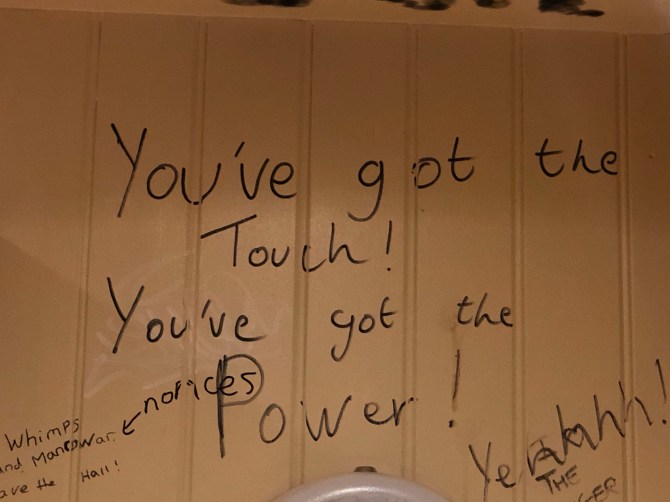 You've got the
Touch!
You've got the
Power!
notices
Whimps
and Manowar
ave the Hall!
Yeahhh!
THE
GER